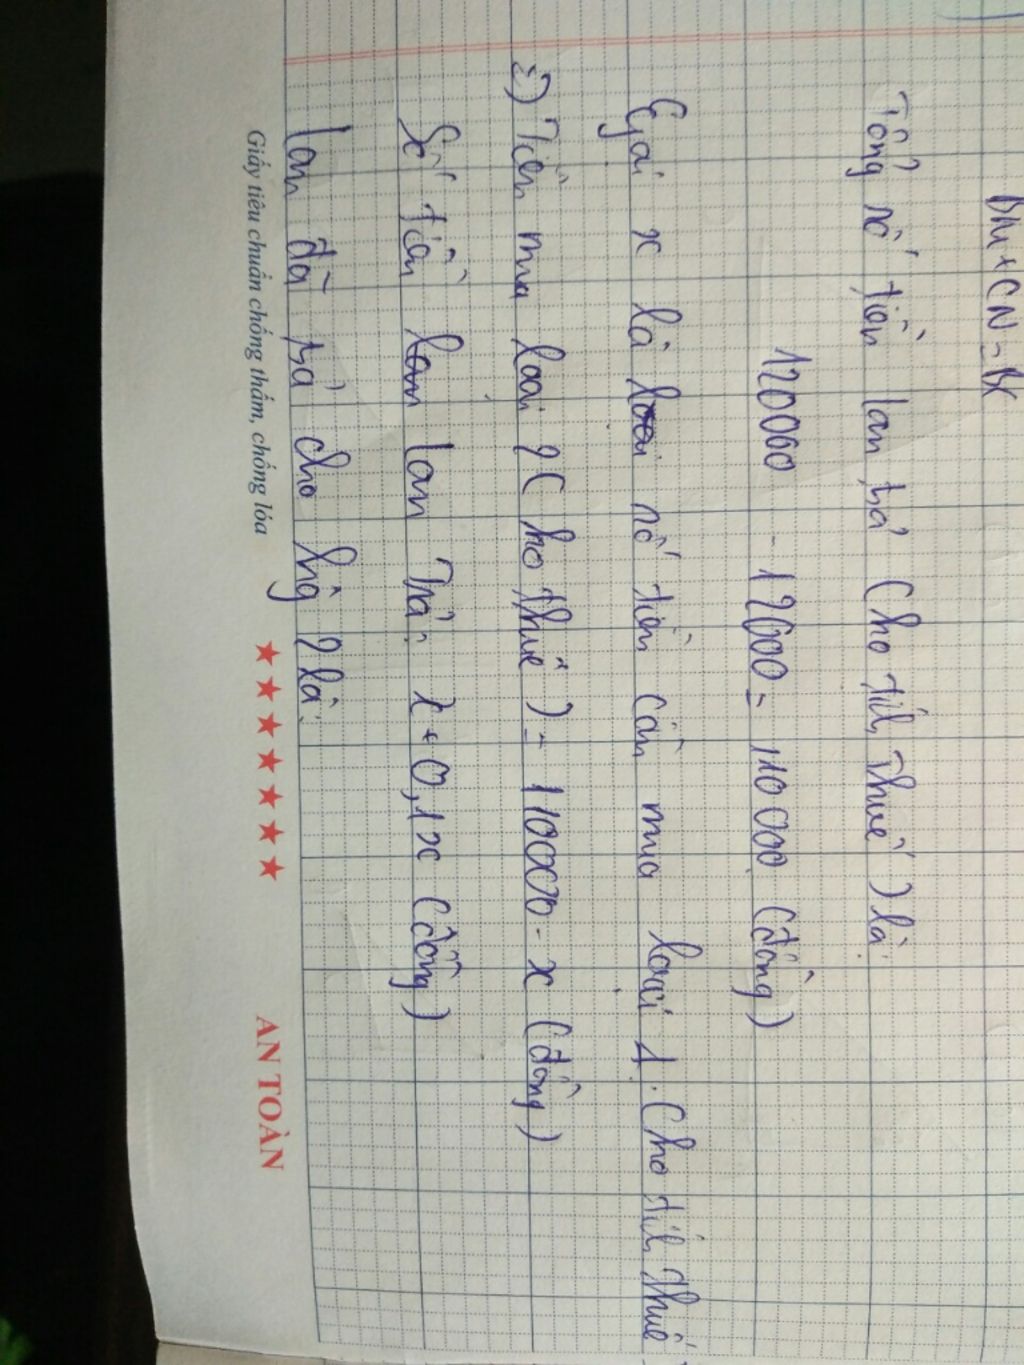 BM + CN = BC
Tổng số tiền lan trả (chưa tính thuế) là:
120000 - 12000 = 110000 (đồng)
Gọi x là số tiền cần mua loại 1. (chưa tính thuế
=) Tiền mua loại 2 (chưa thuế) = 110000 - x (đồng)
Số tiền lan Trả: x + 0,1x (đồng)
lan đã trả cho hàng 2 là:
Giấy tiêu chuẩn chống thấm, chống lóa ★★★★★★★ AN TOÀN